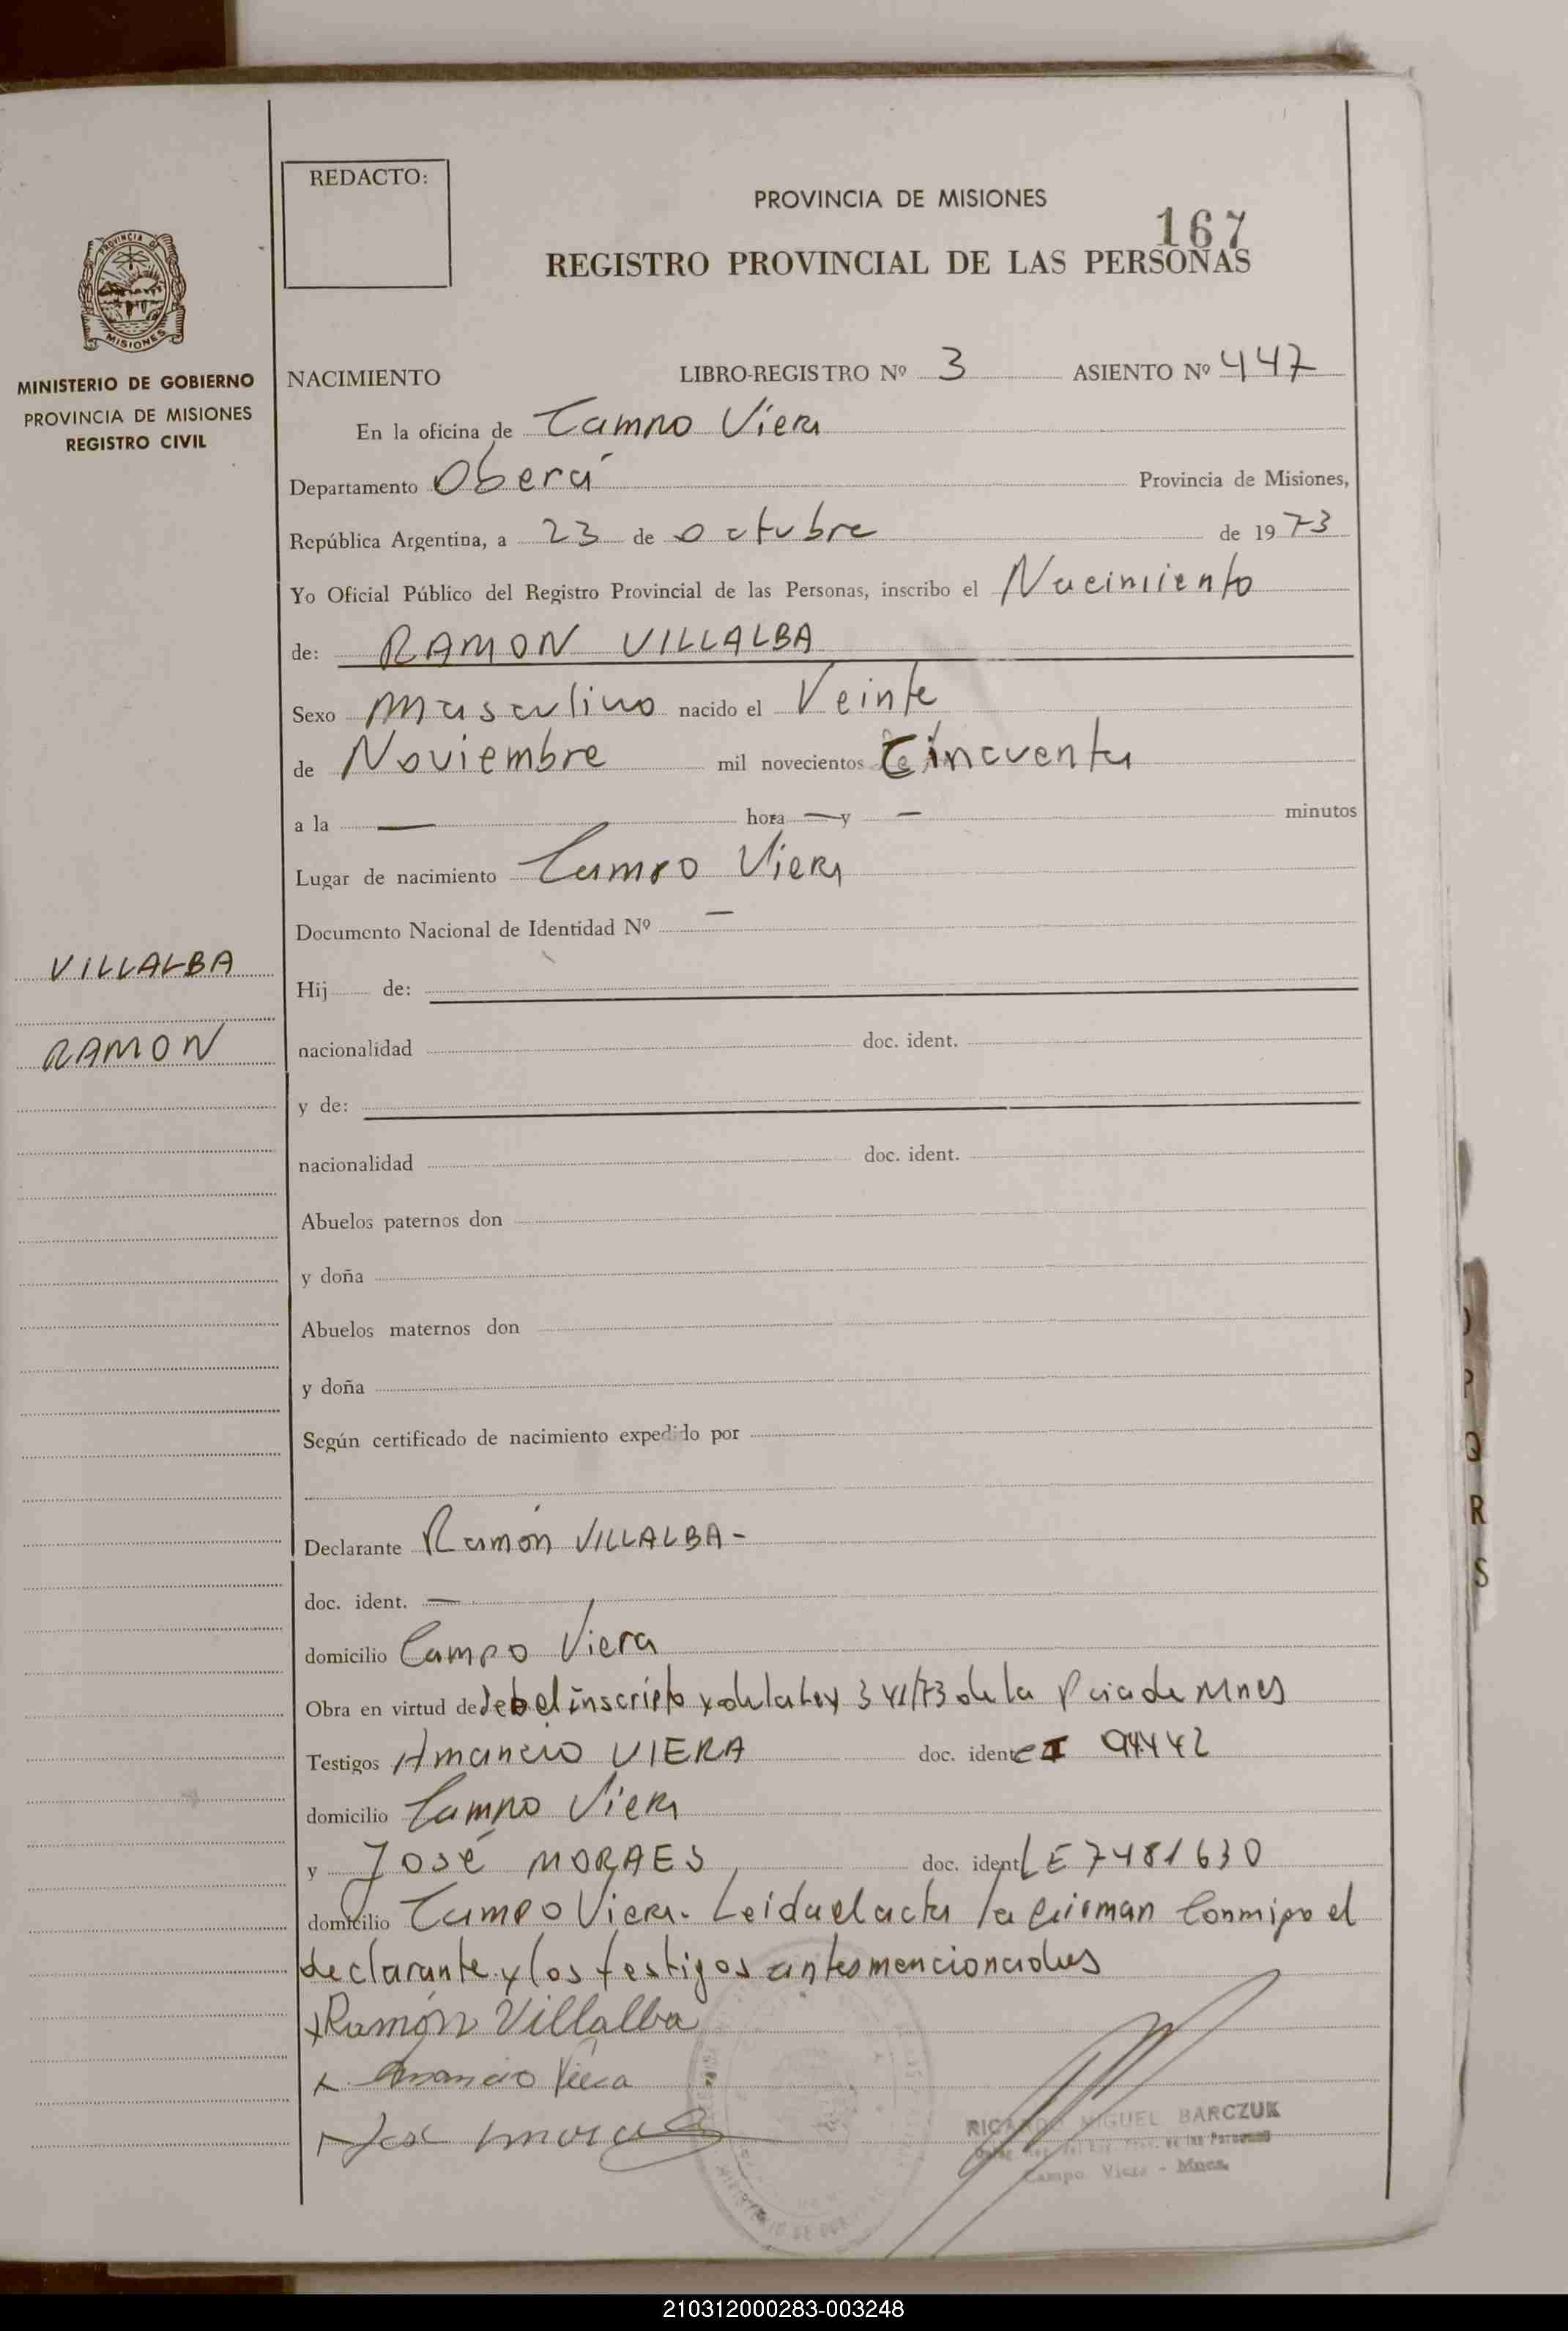 REDACTO:
PROVINCIA DE MISIONES
167
REGISTRO PROVINCIAL DE LAS PERSONAS
PROVINCIA D
MISIONES
MINISTERIO DE GOBIERNO
PROVINCIA DE MISIONES
REGISTRO CIVIL
NACIMIENTO LIBRO-REGISTRO Nº 3 ASIENTO Nº 447
En la oficina de Campo Viera
Departamento Oberá Provincia de Misiones,
República Argentina, a 23 de octubre de 1973
Yo Oficial Público del Registro Provincial de las Personas, inscribo el Nacimiento
de: RAMON VILLALBA
Sexo masculino nacido el Veinte
de Noviembre mil novecientos Cincuenta
a la — hora — y — minutos
Lugar de nacimiento Campo Viera
Documento Nacional de Identidad Nº —
VILLALBA
Hij de:
RAMON
nacionalidad doc. ident.
y de:
nacionalidad doc. ident.
Abuelos paternos don
y doña
Abuelos maternos don
y doña
Según certificado de nacimiento expedido por
Declarante Ramón VILLALBA-
doc. ident. —
domicilio Campo Viera
Obra en virtud de inscripto y de la Ley 341/73 de la Pcia de Mnes
Testigos Amancio VIERA doc. ident CI 94442
domicilio Campo Viera
y José MORAES doc. ident LE 7481630
domicilio Campo Viera. Leida el acta la firman Conmigo el
declarante y los testigos antes mencionados
x Ramón Villalba
x Amancio Viera
x
RICARDO MIGUEL BARCZUK
Campo Viera - Mnes.
MINISTERIO DE
P
Q
R
S
210312000283-003248